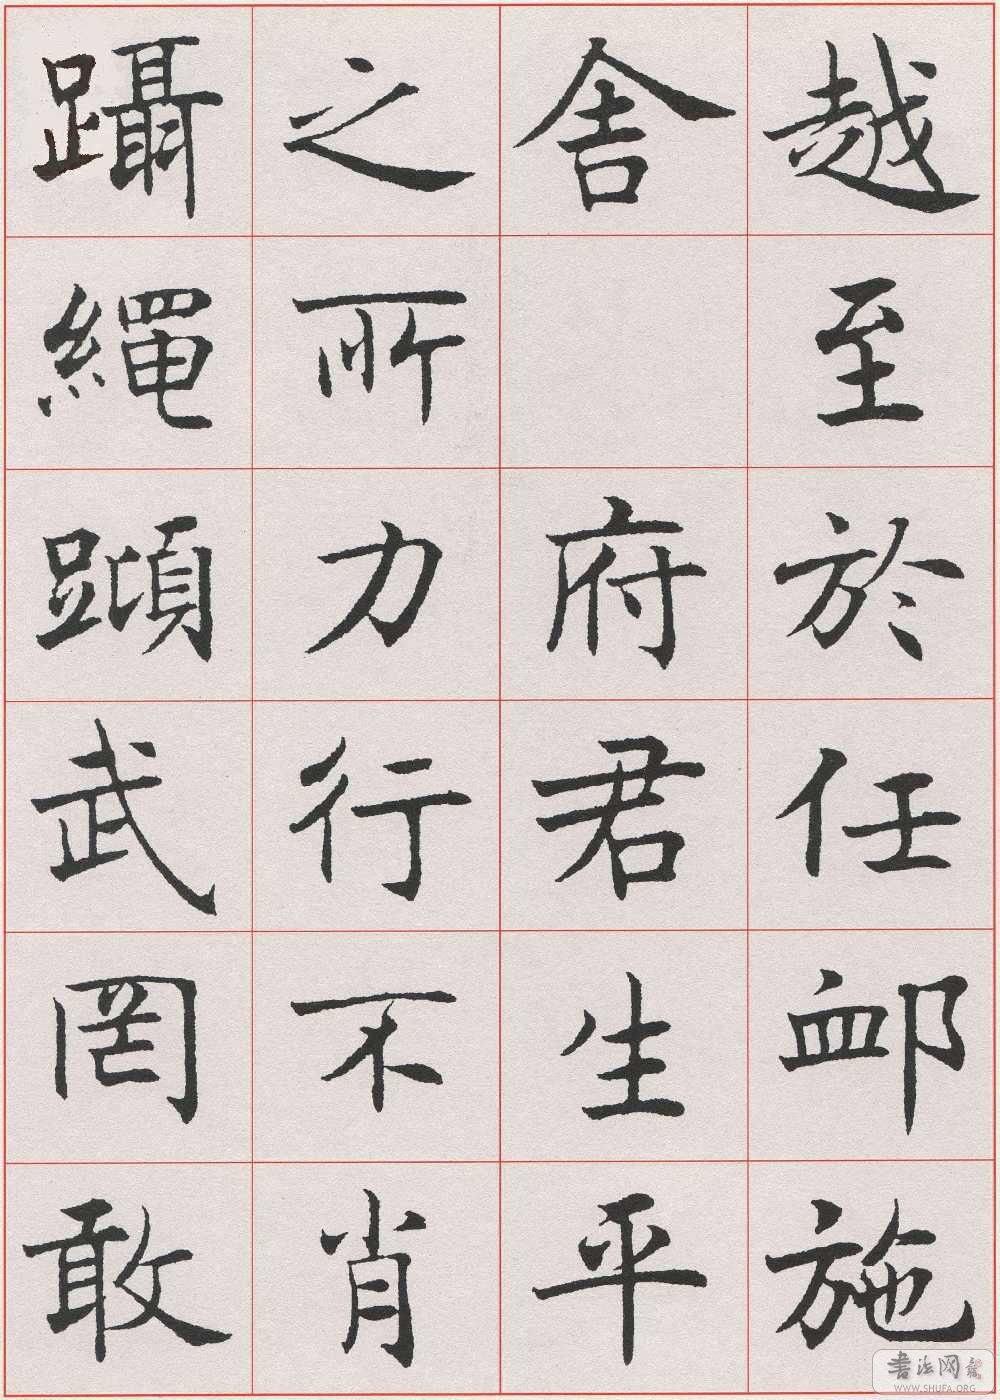 越至於任卹施
舍　府君生平
之所力行不肖
躡繩蹞武罔敢
書法网
WWW.SHUFA.ORG